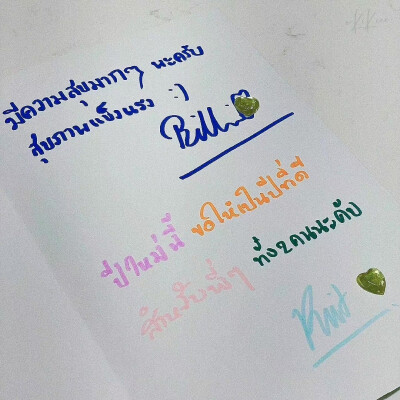 มีความสุขมากๆ นะครับ
สุขภาพแข็งแรง :)
Billi
ปีใหม่นี้ ขอให้เป็นปีที่ดี
สำหรับพี่ๆ ทั้ง2คนนะคับ